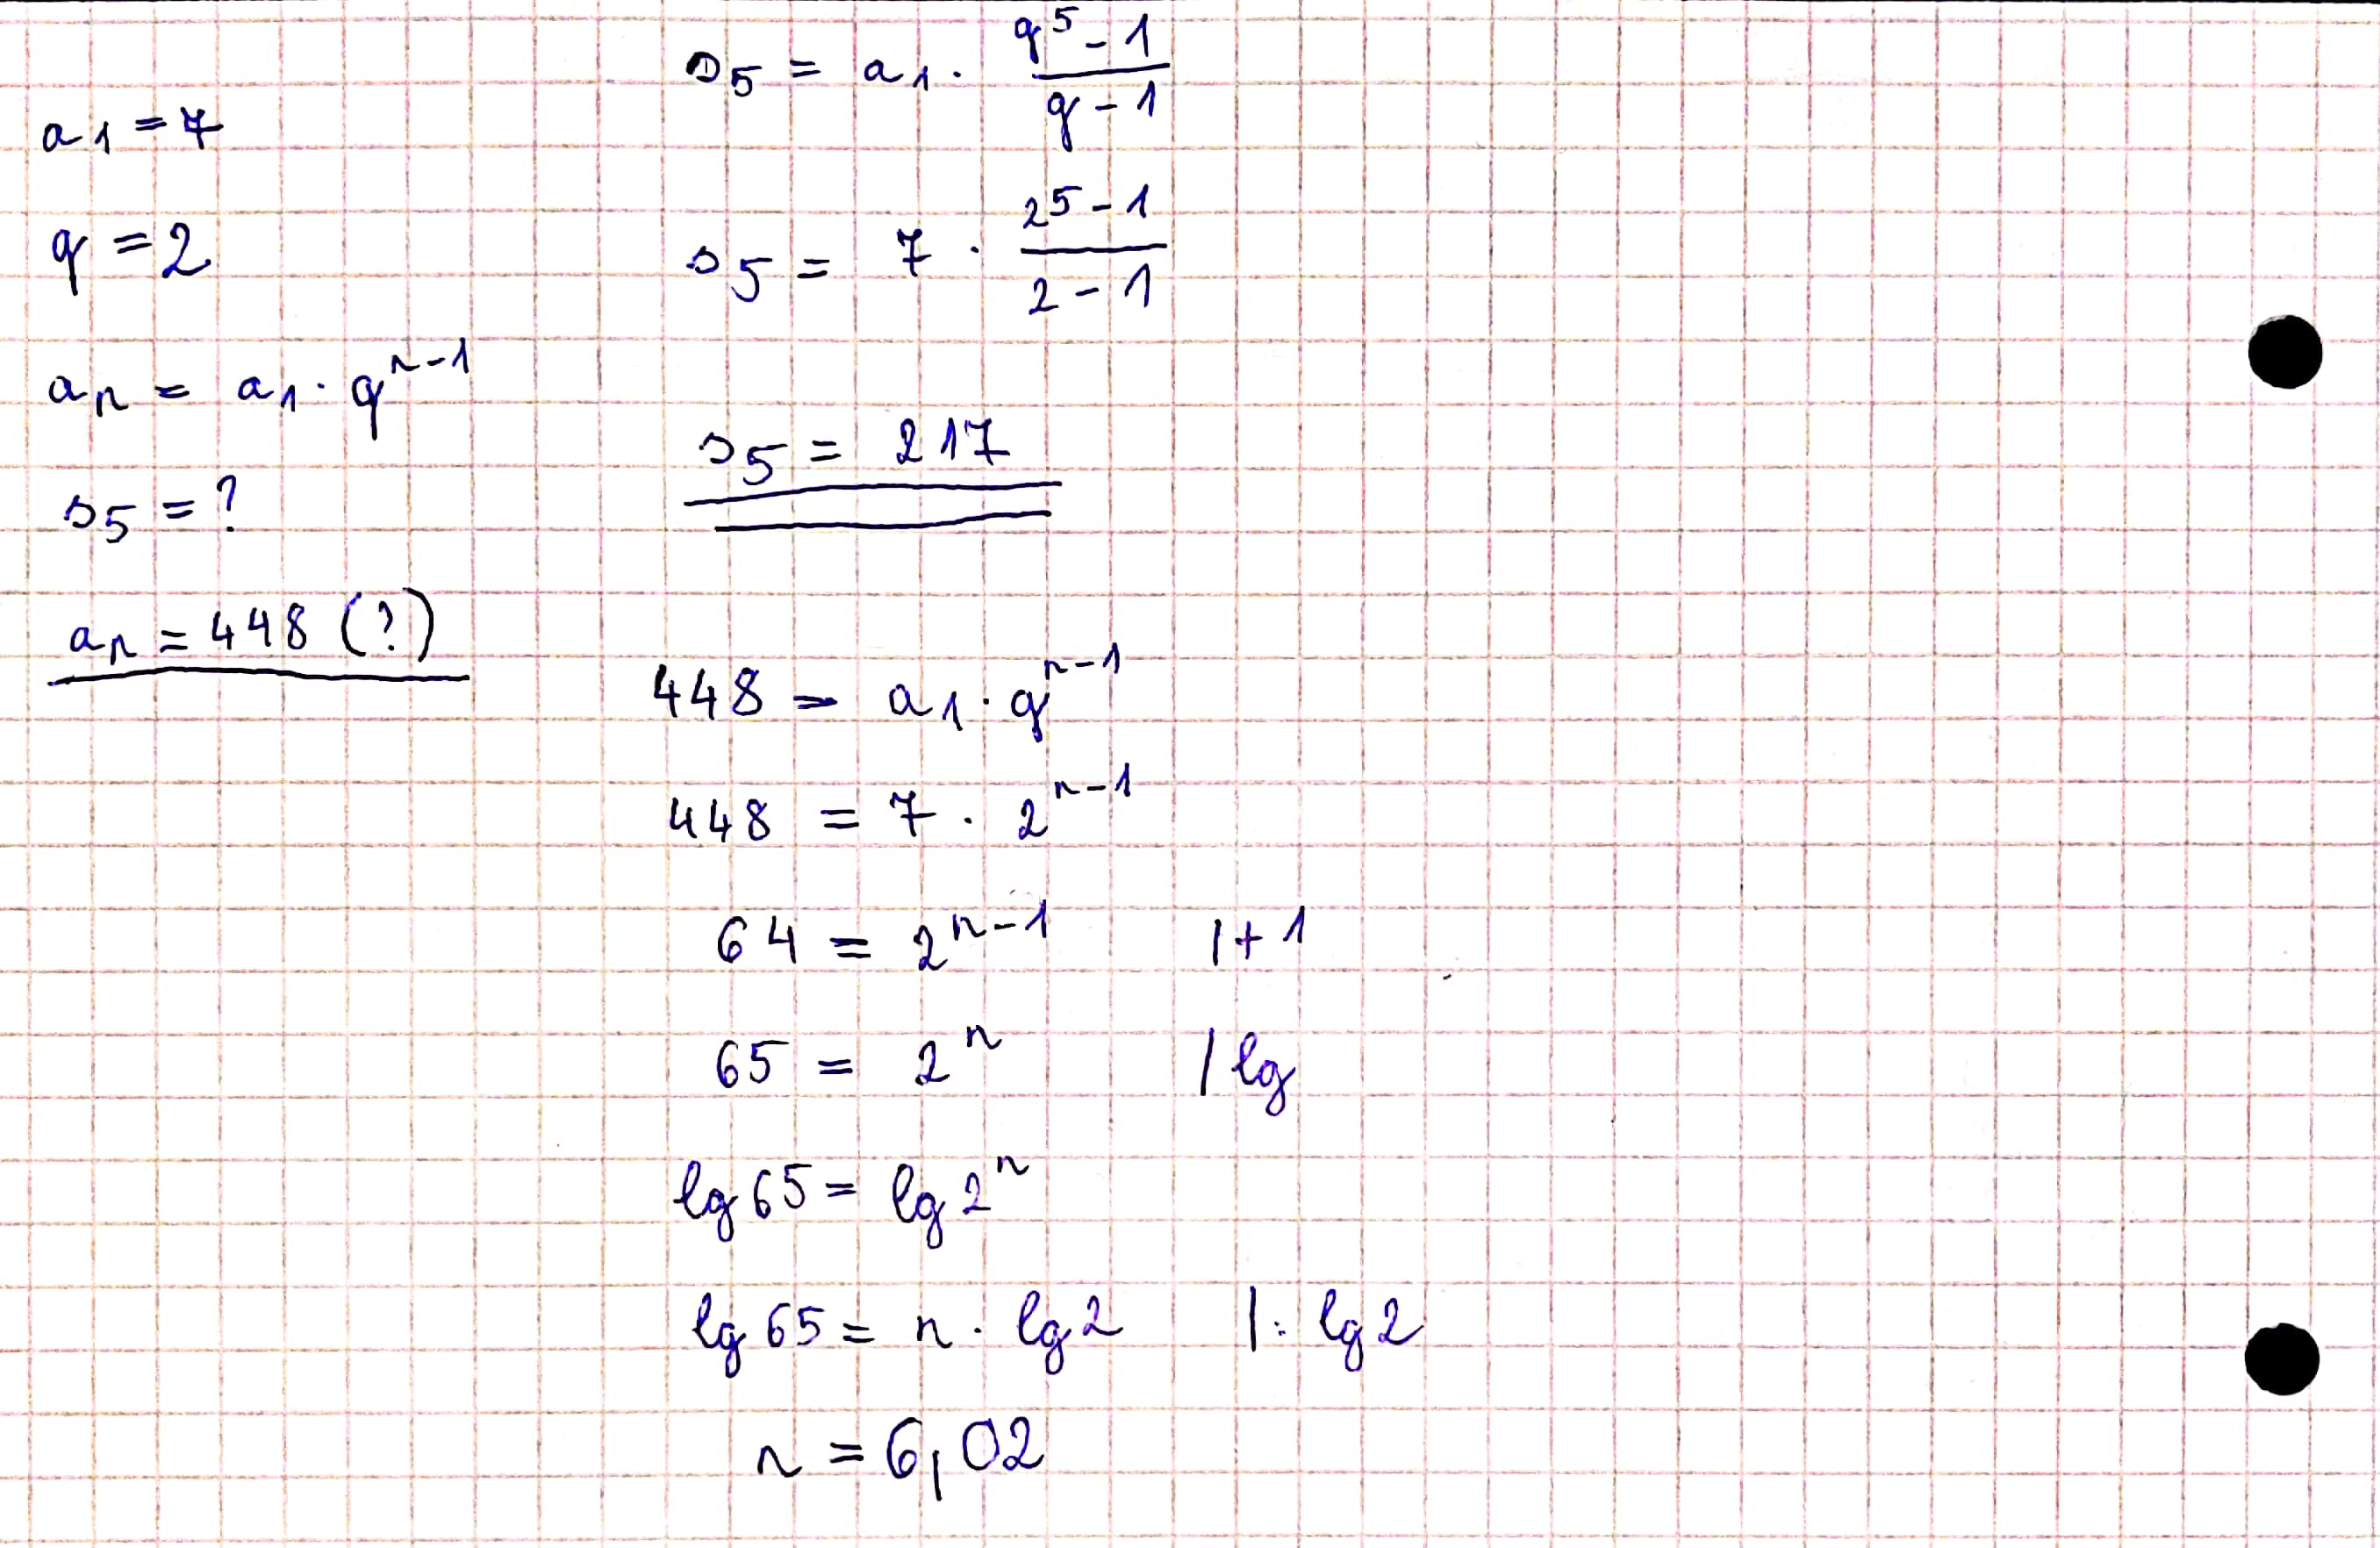 a₁ = 7
q = 2
aₙ = a₁ · qⁿ⁻¹
s₅ = ?
aₙ = 448 (?)
s₅ = a₁ · (q⁵ - 1)/(q - 1)
s₅ = 7 · (2⁵ - 1)/(2 - 1)
s₅ = 217
448 = a₁ · qⁿ⁻¹
448 = 7 · 2ⁿ⁻¹
64 = 2ⁿ⁻¹ |+1
65 = 2ⁿ | lg
lg 65 = lg 2ⁿ
lg 65 = n · lg 2 |: lg 2
n = 6,02